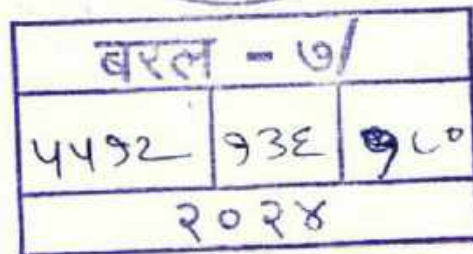 बरल - ७/
५५१२ १३६ १८०
२०२४